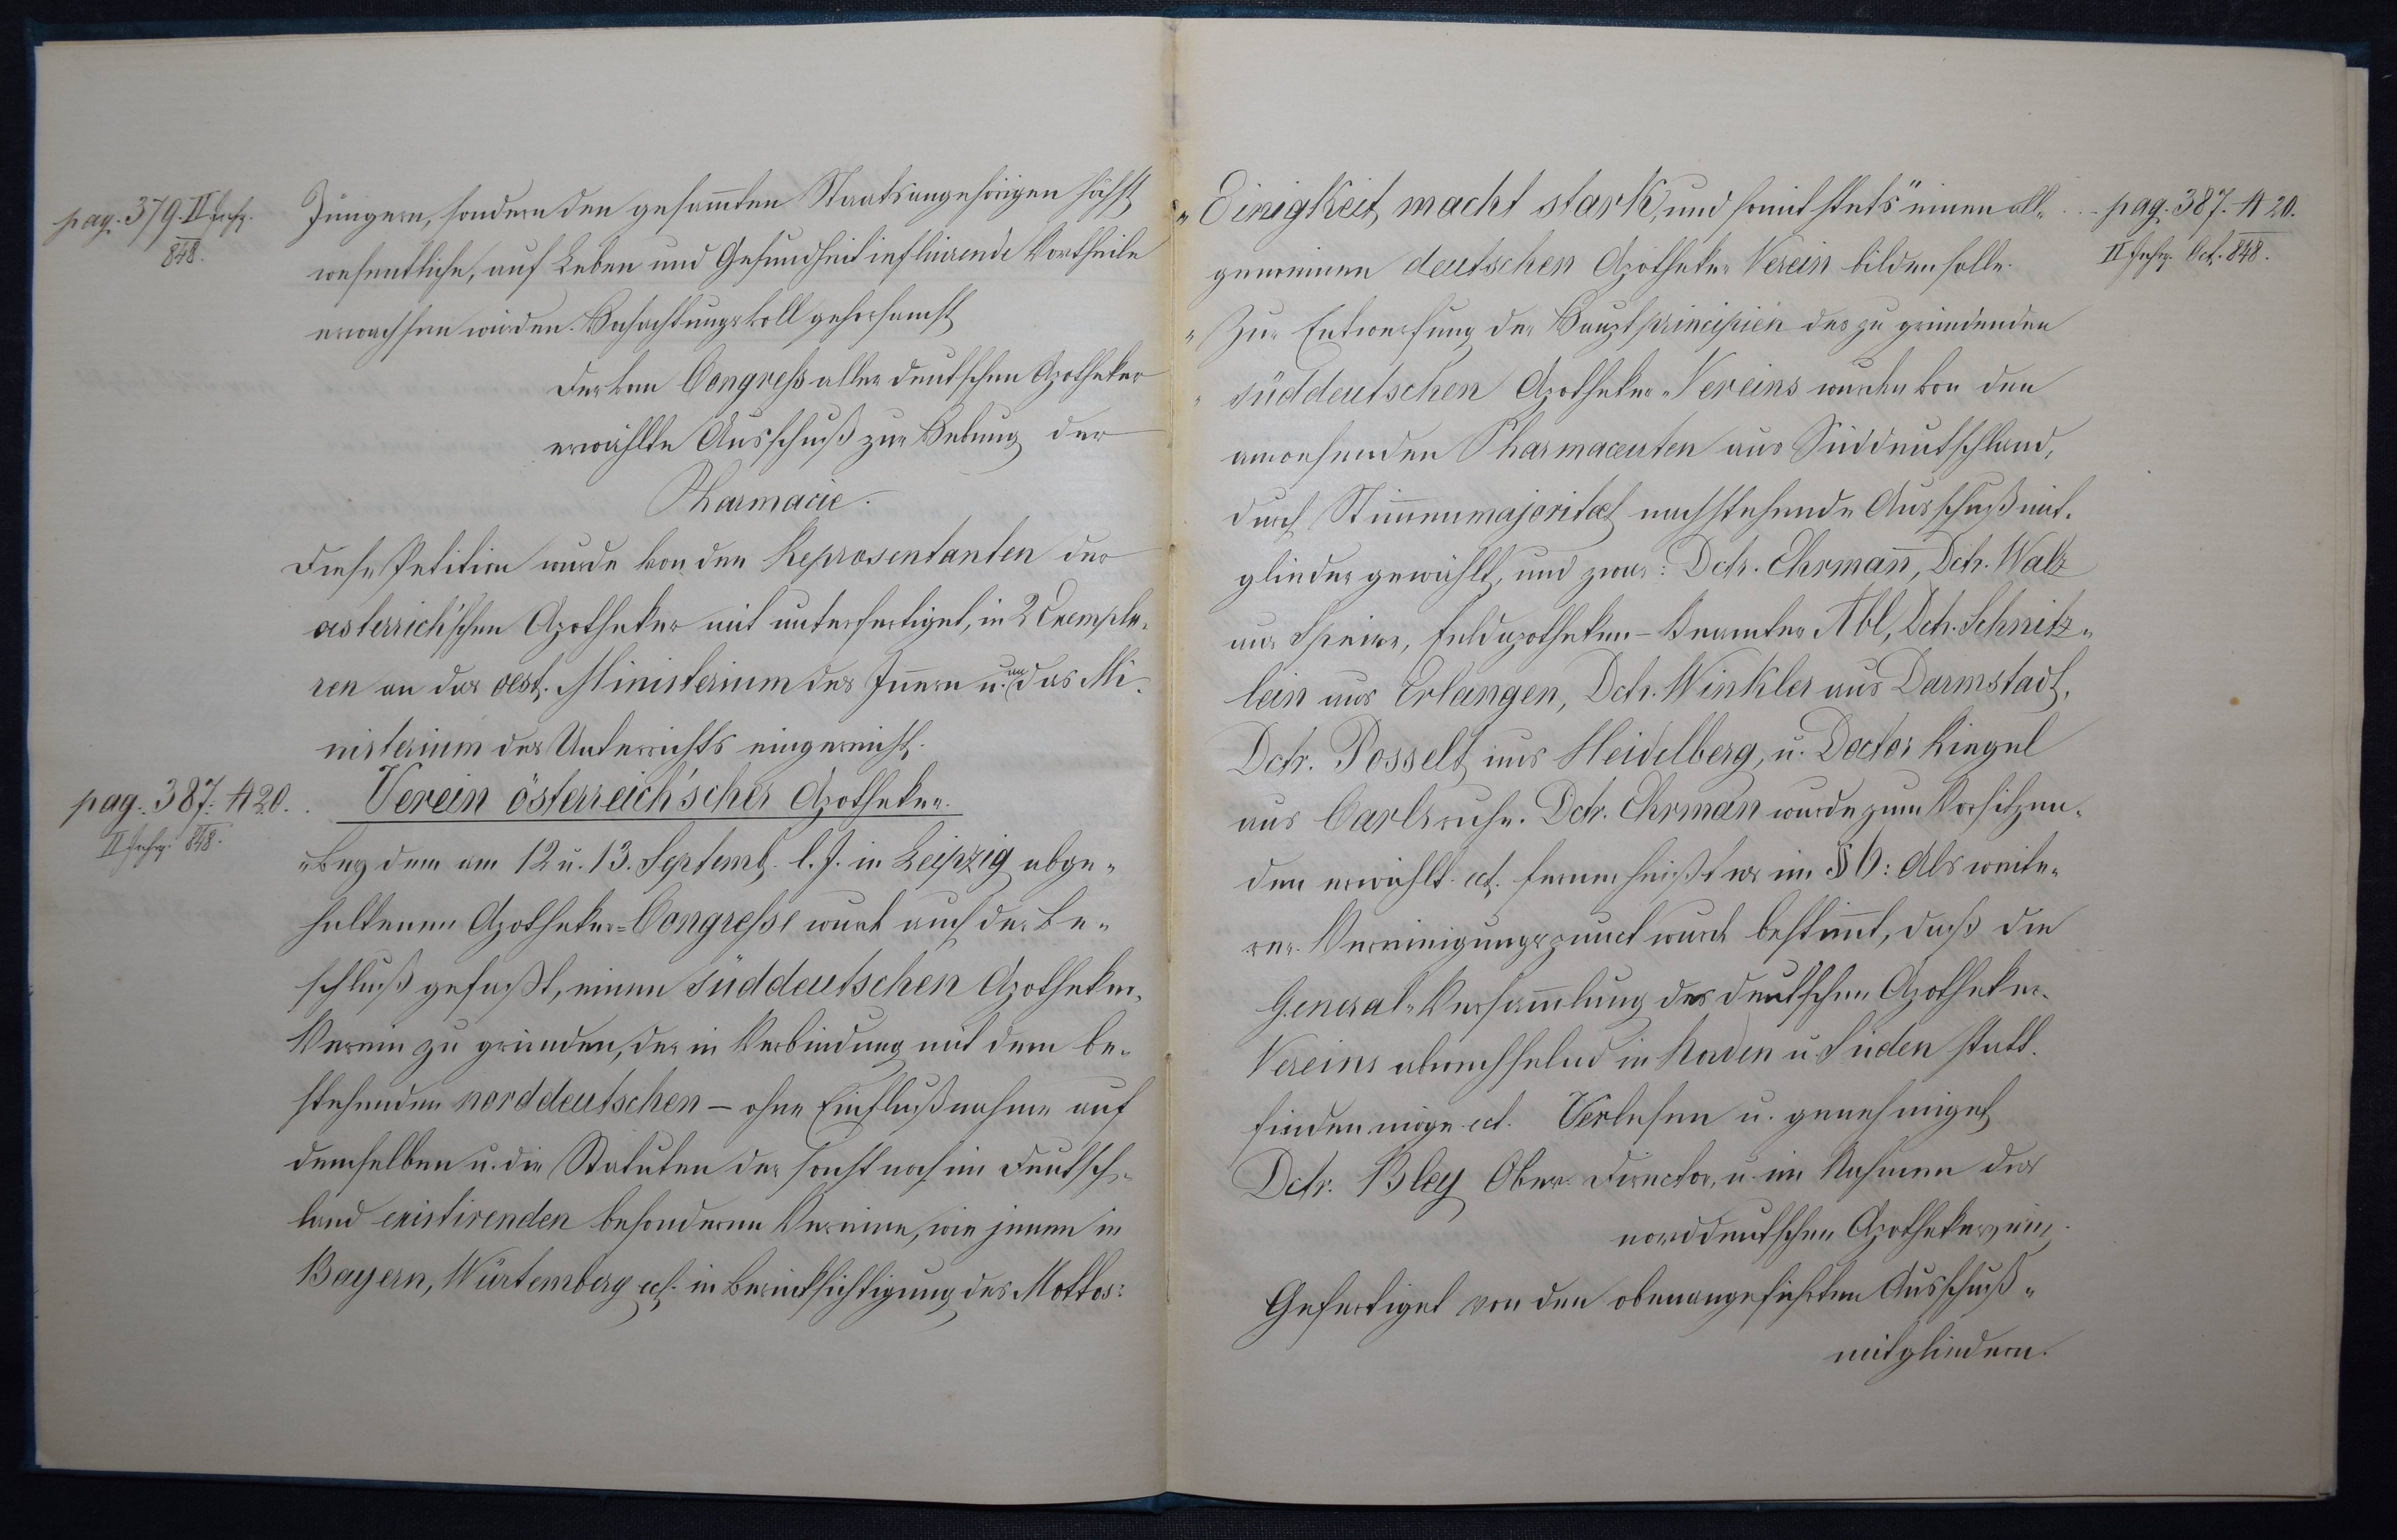 pag. 379. II Jahrg.
848.
Jüngern, sondern den gesam̄ten Staatsangehörigen höchst
wesentliche, auf Leben und Gesundheit influirende Vortheile
erwachsen würden. Hochachtungsvoll gehorsamst
Der vom Congreß aller deutschen Apotheker
erwählte Ausschuß zur Hebung der
Pharmacie.
Diese Petition wurde von den Repräsentanten der
österreich'schen Apotheker mit unterfertiget, in 2 Exempla-
ren an das oest. Ministerium des Innern u. an das Mi-
nisterium des Unterrichts eingereicht.
pag. 387. A 20.
II Jahrg. 848.
Verein österreich'scher Apotheker.
„Bey dem am 12 u. 13. Septemb. l. J. in Leipzig abge-
haltenen Apotheker=Congreße ward auch der Be-
schluß gefaßt, einen süddeutschen Apotheker-
Verein zu gründen, der in Verbindung mit dem be-
stehenden norddeutschen – ohne Einflußnahme auf
denselben u. die Statuten der sonst noch in Deutsch-
land existirenden besonderen Vereine, wie jenen in
Bayern, Würtemberg ect. in Berücksichtigung des Mottos:
„Einigkeit macht stark, und somit stets" einen all-
gemeinen deutschen Apotheker Verein bilden solle.
„Zur Entwerfung der Hauptprincipien des zu gründenden
süddeutschen Apotheker-Vereins wurden von den
anwesenden Pharmaceuten aus Süddeutschland,
durch Stim̄enmajoritæt nachstehende Ausschußmit-
glieder gewählt, und zwar: Dctr. Ehrman̄, Dctr. Walz
aus Speier, Feldapotheken-Beamter Abl, Dctr. Schnitz-
lein aus Erlangen, Dctr. Winkler aus Darmstadt,
Dctr. Posselt aus Heidelberg, u. Doctor Riegel
aus Carlsruhe. Dctr. Ehrman̄ wurde zum Vorsitzen-
den erwählt ect. ferner heißt es im § 6: Als weite-
rer Vereinigungspunct ward bestim̄t, daß die
General-Versam̄lung des deutschen Apotheker-
Vereins abwechselnd in Norden u. Süden statt-
finden möge ect. Verlesen u. genehmiget
Dctr. Bley Ober-Director, u. im Nahmen des
norddeutschen Apothekerverein.
Gefertiget von den obenangeführten Ausschuß-
mitgliedern.
pag. 387. A 20.
II Jahrg. Oct. 848.